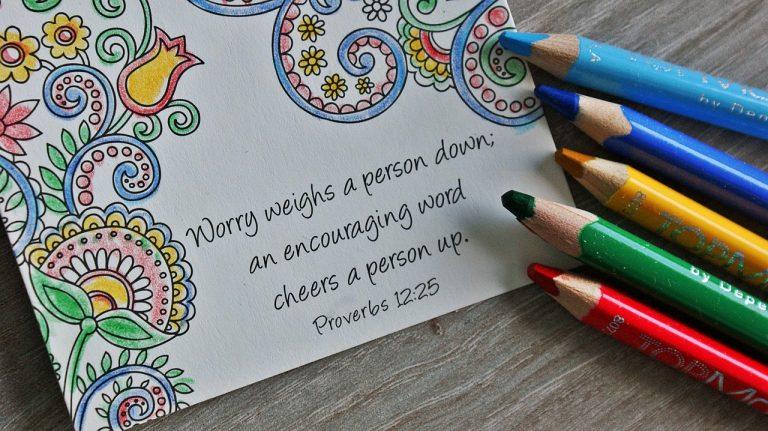 Worry weighs a person down;
an encouraging word
cheers a person up.
Proverbs 12:25
by Depe
TOPMO